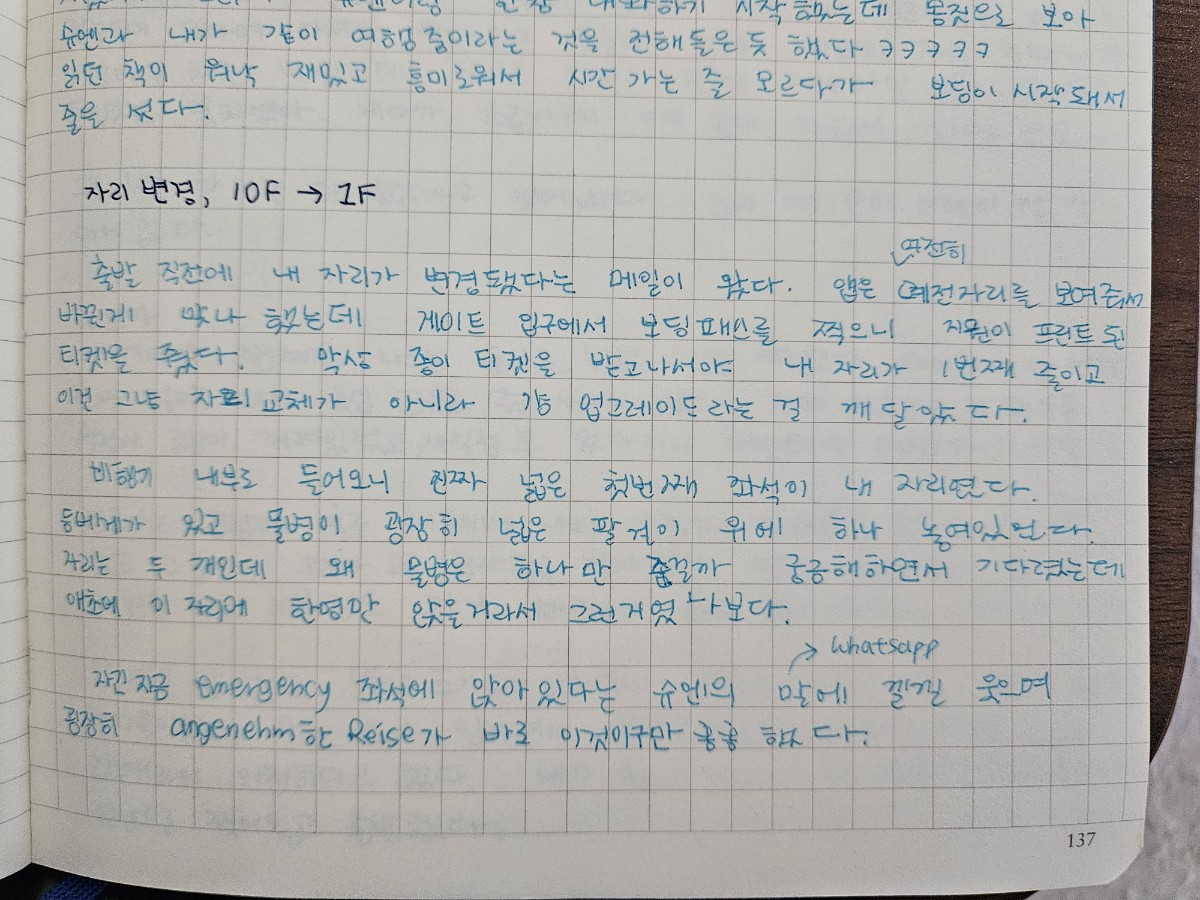 대화하기 시작했는데 몸짓으로 보아
슈엔과 내가 같이 여행중이라는 것을 전해들은듯 했다 ㅋㅋㅋㅋㅋ
읽던 책이 워낙 재밌고 흥미로워서 시간 가는 줄 모르다가 보딩이 시작돼서
줄을 섰다.
자리 변경, 10F → 1F
여전히
출발 직전에 내 자리가 변경됐다는 메일이 왔다. 앱은 예전자리를 보여줘서
바뀐게 맞나 했는데 게이트 입구에서 보딩패스를 찍으니 직원이 프린트 된
티켓을 줬다. 막상 종이 티켓을 받고나서야 내 자리가 1번째 줄이고
이건 그냥 자리교체가 아니라 걍 업그레이드라는 걸 깨달았다.
비행기 내부로 들어오니 진짜 넓은 첫번째 좌석이 내 자리였다.
등베게가 있고 물병이 굉장히 넓은 팔걸이 위에 하나 놓여있었다.
자리는 두 개인데 왜 물병은 하나만 줬을까 궁금해하면서 기다렸는데
애초에 이 자리에 한명만 앉을거라서 그런거였나보다.
→ whatsapp
자긴 지금 emergency 좌석에 앉아있다는 슈엔의 말에 낄낄 웃으며
굉장히 angenehm한 Reise가 바로 이것이구만 훟훟 했다.
137